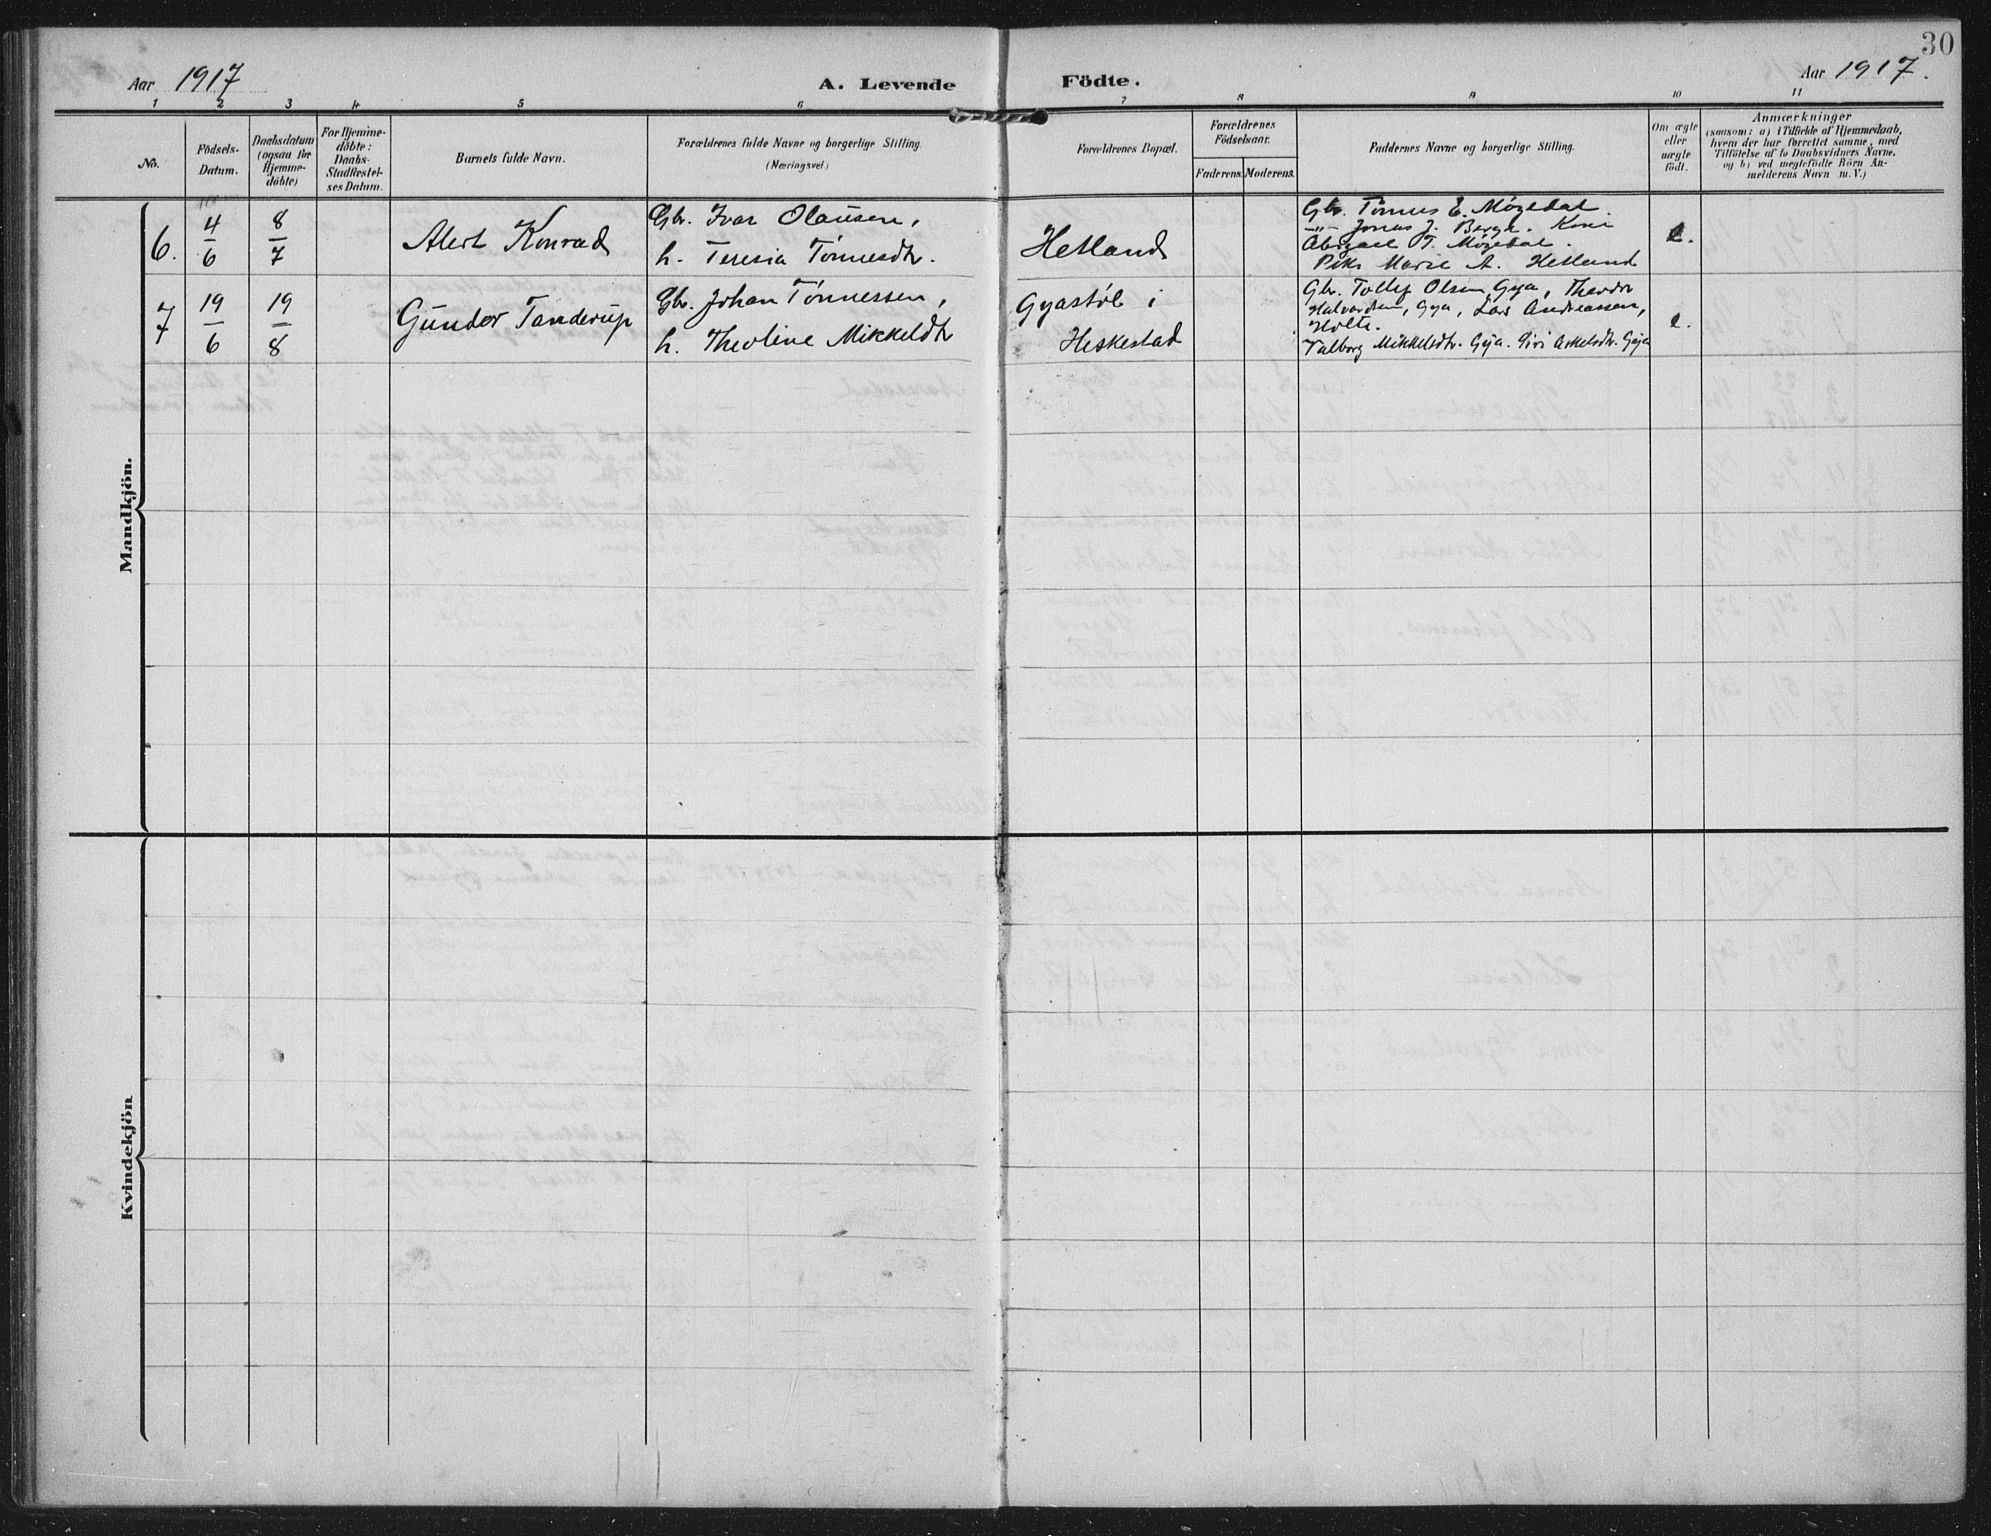 30
Aar 1917
A. Levende Födte.
Aar 1917.
1 2 3 4 5 6 7 8 9 10 11
No.
Födsels-
Datum.
Daabsdatum
(ogsaa for
Hjemme-
döbte)
For Hjemme-
döbte:
Daabs-
Stadfæstel-
ses Datum.
Barnets fulde Navn.
Forældrenes fulde Navne og borgerlige Stilling.
(Næringsvei.)
Forældrenes Bopæl.
Forældrenes
Födselsaar.
Faderens. Moderens.
Faddernes Navne og borgerlige Stilling.
Om ægte
eller
uægte
födt.
Anmærkninger
(saasom: a) i Tilfælde af Hjemmedaab,
hvem der har forrettet samme, med
Tilföielse af to Daabsvidners Navne,
og b) ved uægtefödte Börn An-
melderens Navn m. V.)
Mandkjön.
6. 4/6 8/7 Alert Konrad
Gbr. Ivar Olausen,
h. Teresia Tönnesdtr.
Hetland
Gbr. Tönnes E. Mögedal.
-"- Jonas J. Bergh. Kone
Abigael T. Mögedal.
Pike Marie A. Hetland
e.
7 19/6 19/8 Gunder Tanderup
Gbr. Johan Tönnessen,
h. Theoline Mikkeldtr
Gyastöl i
Heskestad
Gbr. Tollef Olsen Gya, Theodor
Halvordsen, Gya, Lars Andreassen,
Holte.
Valborg Mikkelsdtr. Gya. Siri Askelsdtr. Gya
e.
Kvindekjön